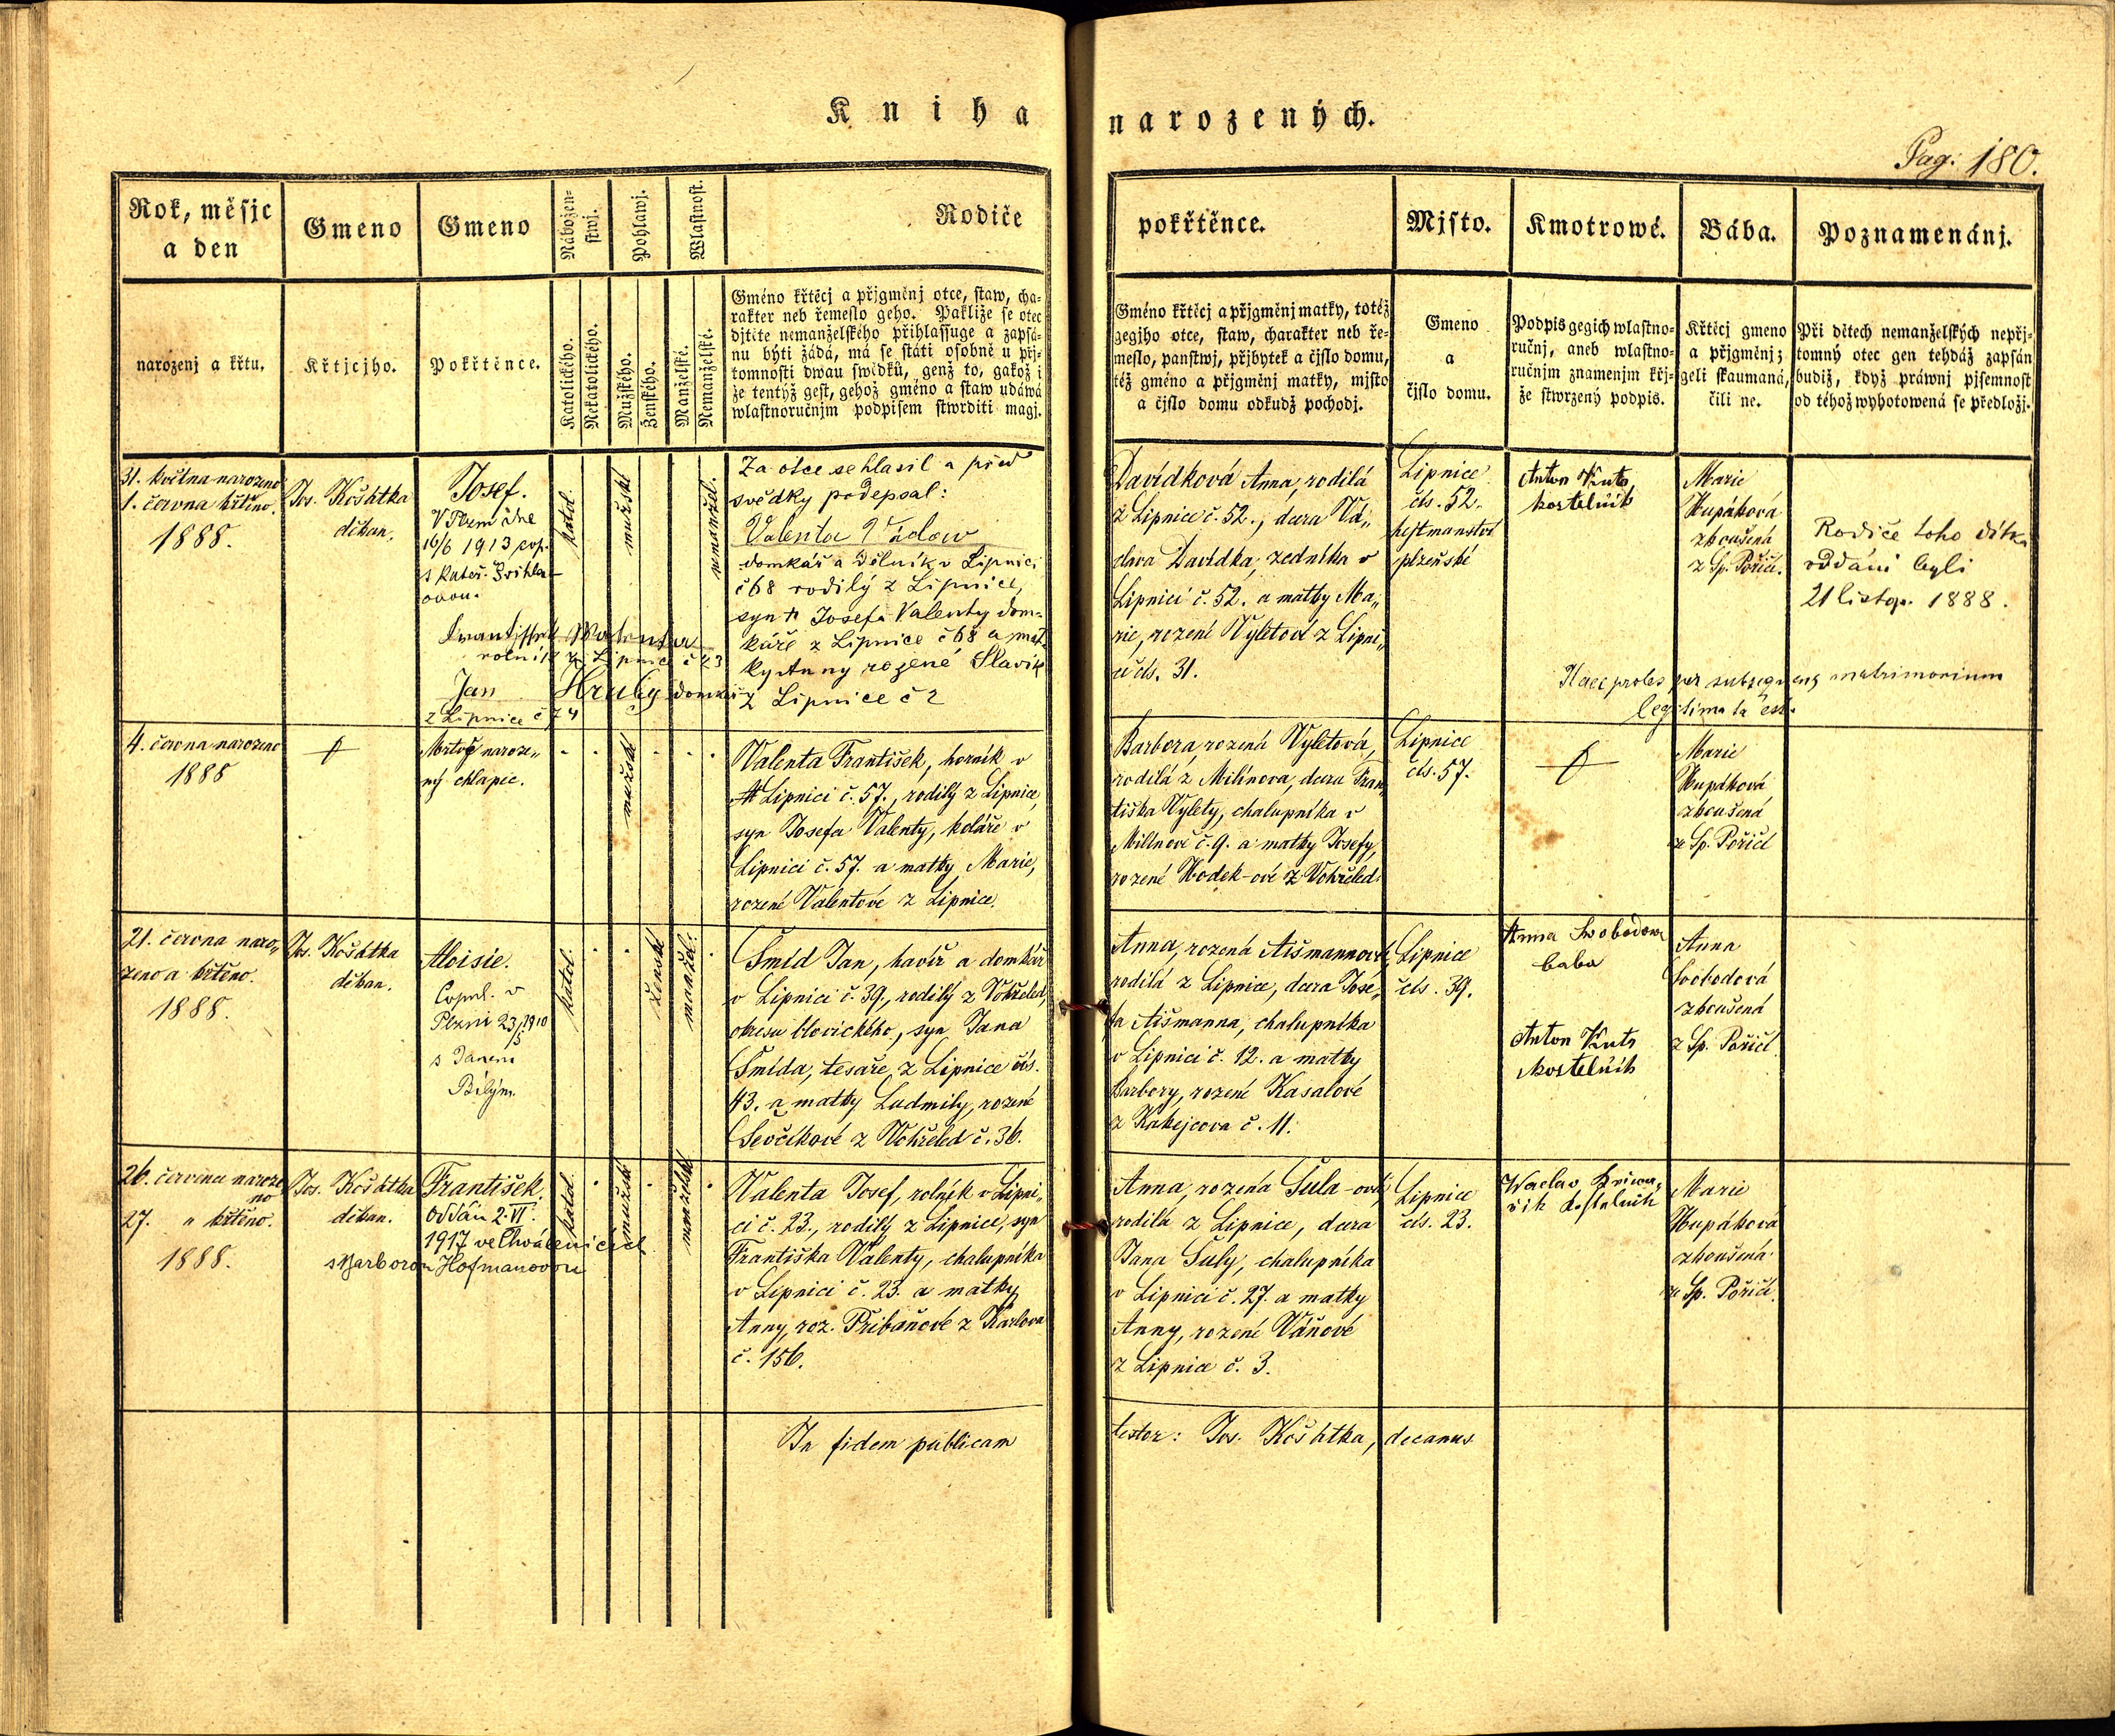 Kniha narozených.
Pag: 180.
Rok, měsjc
a den
narozenj a křtu.
Gmeno
Křtjcjho.
Gmeno
Pokřtěnce.
Nábožen-
stwj.
Katolického.
Nekatolického.
Pohlawj.
Mužského.
Ženského.
Wlastnost.
Manželské.
Nemanželské.
Rodiče
Gméno křtěcj a přjgměnj otce, staw, cha-
rakter neb řemeslo geho. Pakliže se otec
djtěte nemanželského přihlassuge a zapsá-
nu býti žádá, má se státi osobně u přj-
tomnosti dwau swědků, genž to, gakož i
že tentýž gest, gehož gméno a staw udáwá
wlastnoručnjm podpisem stwrditi magj.
pokřtěnce.
Gméno křtěcj a přjgměnj matky, totéž
gegjho otce, staw, charakter neb ře-
meslo, panstwj, přjbytek a čjslo domu,
též gméno a přjgměnj matky, mjsto
a čjslo domu odkudž pochodj.
Mjsto.
Gmeno
a
čjslo domu.
Kmotrowé.
Podpis gegich wlastno-
ručnj, aneb wlastno-
ručnjm znamenjm křj-
že stwrzený podpis.
Bába.
Křtěcj gmeno
a přjgměnj;
geli skaumaná,
čili ne.
Poznamenánj.
Při dětech nemanželských nepřj-
tomný otec gen tehdáž zapsán
budiž, když práwnj pjsemnost
od téhož wyhotowená se předložj.
31. května narozeno
1. června křtěno.
1888.
Jos. Košátka
děkan.
Josef.
V Plzni dne
16/6 1913 cop.
s Kateř.
ovou.
katol.
mužské
nemanžel.
Za otce se hlasil a před
svědky podepsal:
Valenta Václaw
domkář a dělník v Lipnici
č 68 rodilý z Lipnice,
syn † Josefa Valenty dom-
káře z Lipnice č 68 a mat-
ky Anny rozené Slavík
z Lipnice č 2
František Walenta
rolník z Lipnice č 23
Jan Hrubý domkář
z Lipnice č 74
Davídková Anna, rodilá
z Lipnice č. 52., dcera Vá„
clava Davídka, zedníka v
Lipnici č. 52. a matky Ma„
rie, rozené Vyletové z Lipni„
ce čís. 31.
Lipnice
čís. 52.
hejtmanství
plzeňské
Anton Kuts
kostelník
Marie
Hupáková
zkoušená
z Sp. Poříčí.
Rodiče toho dítka
oddáni byli
21 listop. 1888.
Haec proles per subsequens matrimonium
legitimata est.
4. června narozeno
1888
Mrtvě naroze„
ný chlapec.
mužské
Valenta František, horník v
Lipnici č. 57., rodilý z Lipnice,
syn Josefa Valenty, koláře v
Lipnici č. 57. a matky Marie,
rozené Valentové z Lipnice.
Barbora, rozená Vyletová,
rodilá z Milínova, dcera Fran„
tiška Vylety, chalupníka v
Milínově č. 9. a matky Josefy,
rozené Hodek-ové z Vohřeled.
Lipnice
čís. 57.
Marie
Hupáková
zkoušená
ze Sp. Poříčí
21. června naro„
zeno a křtěno.
1888.
Jos. Košátka
děkan.
Aloisie.
Copul. v
Plzni 23/5 1910
s Janem
Bílým.
katol.
ženské
manžel.
Šmíd Jan, havíř a domkář
v Lipnici č. 39., rodilý z Vohřeled,
okresu blovického, syn Jana
Šmída, tesaře z Lipnice čís.
43. a matky Ludmily, rozené
Ševčíkové z Vohřeled č. 36.
Anna, rozená Aišmannová
rodilá z Lipnice, dcera Jose„
fa Aišmanna, chalupníka
v Lipnici č. 12. a matky
Barbory, rozené Kasalové
z Kakejcova č. 11.
Lipnice
čís. 39.
Anna Swobodowa
baba
Anton Kuts
kostelník
Anna
Svobodová
zkoušená
z Sp. Poříčí
26. července naroze
no
27. " křtěno.
1888.
Jos. Košátka
děkan.
František.
Oddán 2. VI.
1917 ve Chválenicích
s Barborou Hofmanovou
katol.
mužské
manželské
Valenta Josef, rolník v Lipni„
ci č. 23., rodilý z Lipnice, syn
Františka Valenty, chalupníka
v Lipnici č. 23. a matky
Anny, roz. Přibáňové z Karlova
č. 156.
Anna, rozená Šula-ová,
rodilá z Lipnice, dcera
Jana Šuly, chalupníka
v Lipnici č. 27. a matky
Anny, rozené Váňové
z Lipnice č. 3.
Lipnice
čís. 23.
Waclav
Marie
Hupáková
zkoušená
ze Sp. Poříčí.
In fidem publicam
testor: Jos. Košátka, decanus